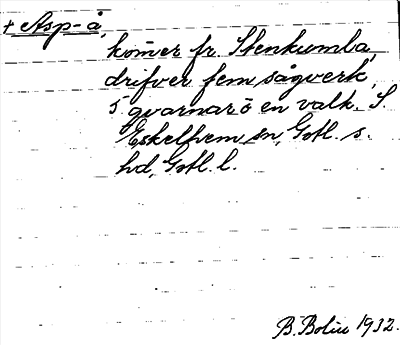 + Asp-å,
kom̄er fr. Stenkumla,
drifver fem sågverk,
5 qvarnar o en valk. S.
Eskelhem sn, Gotl. s.
hd, Gotl. l.
B. Bolin 1932.